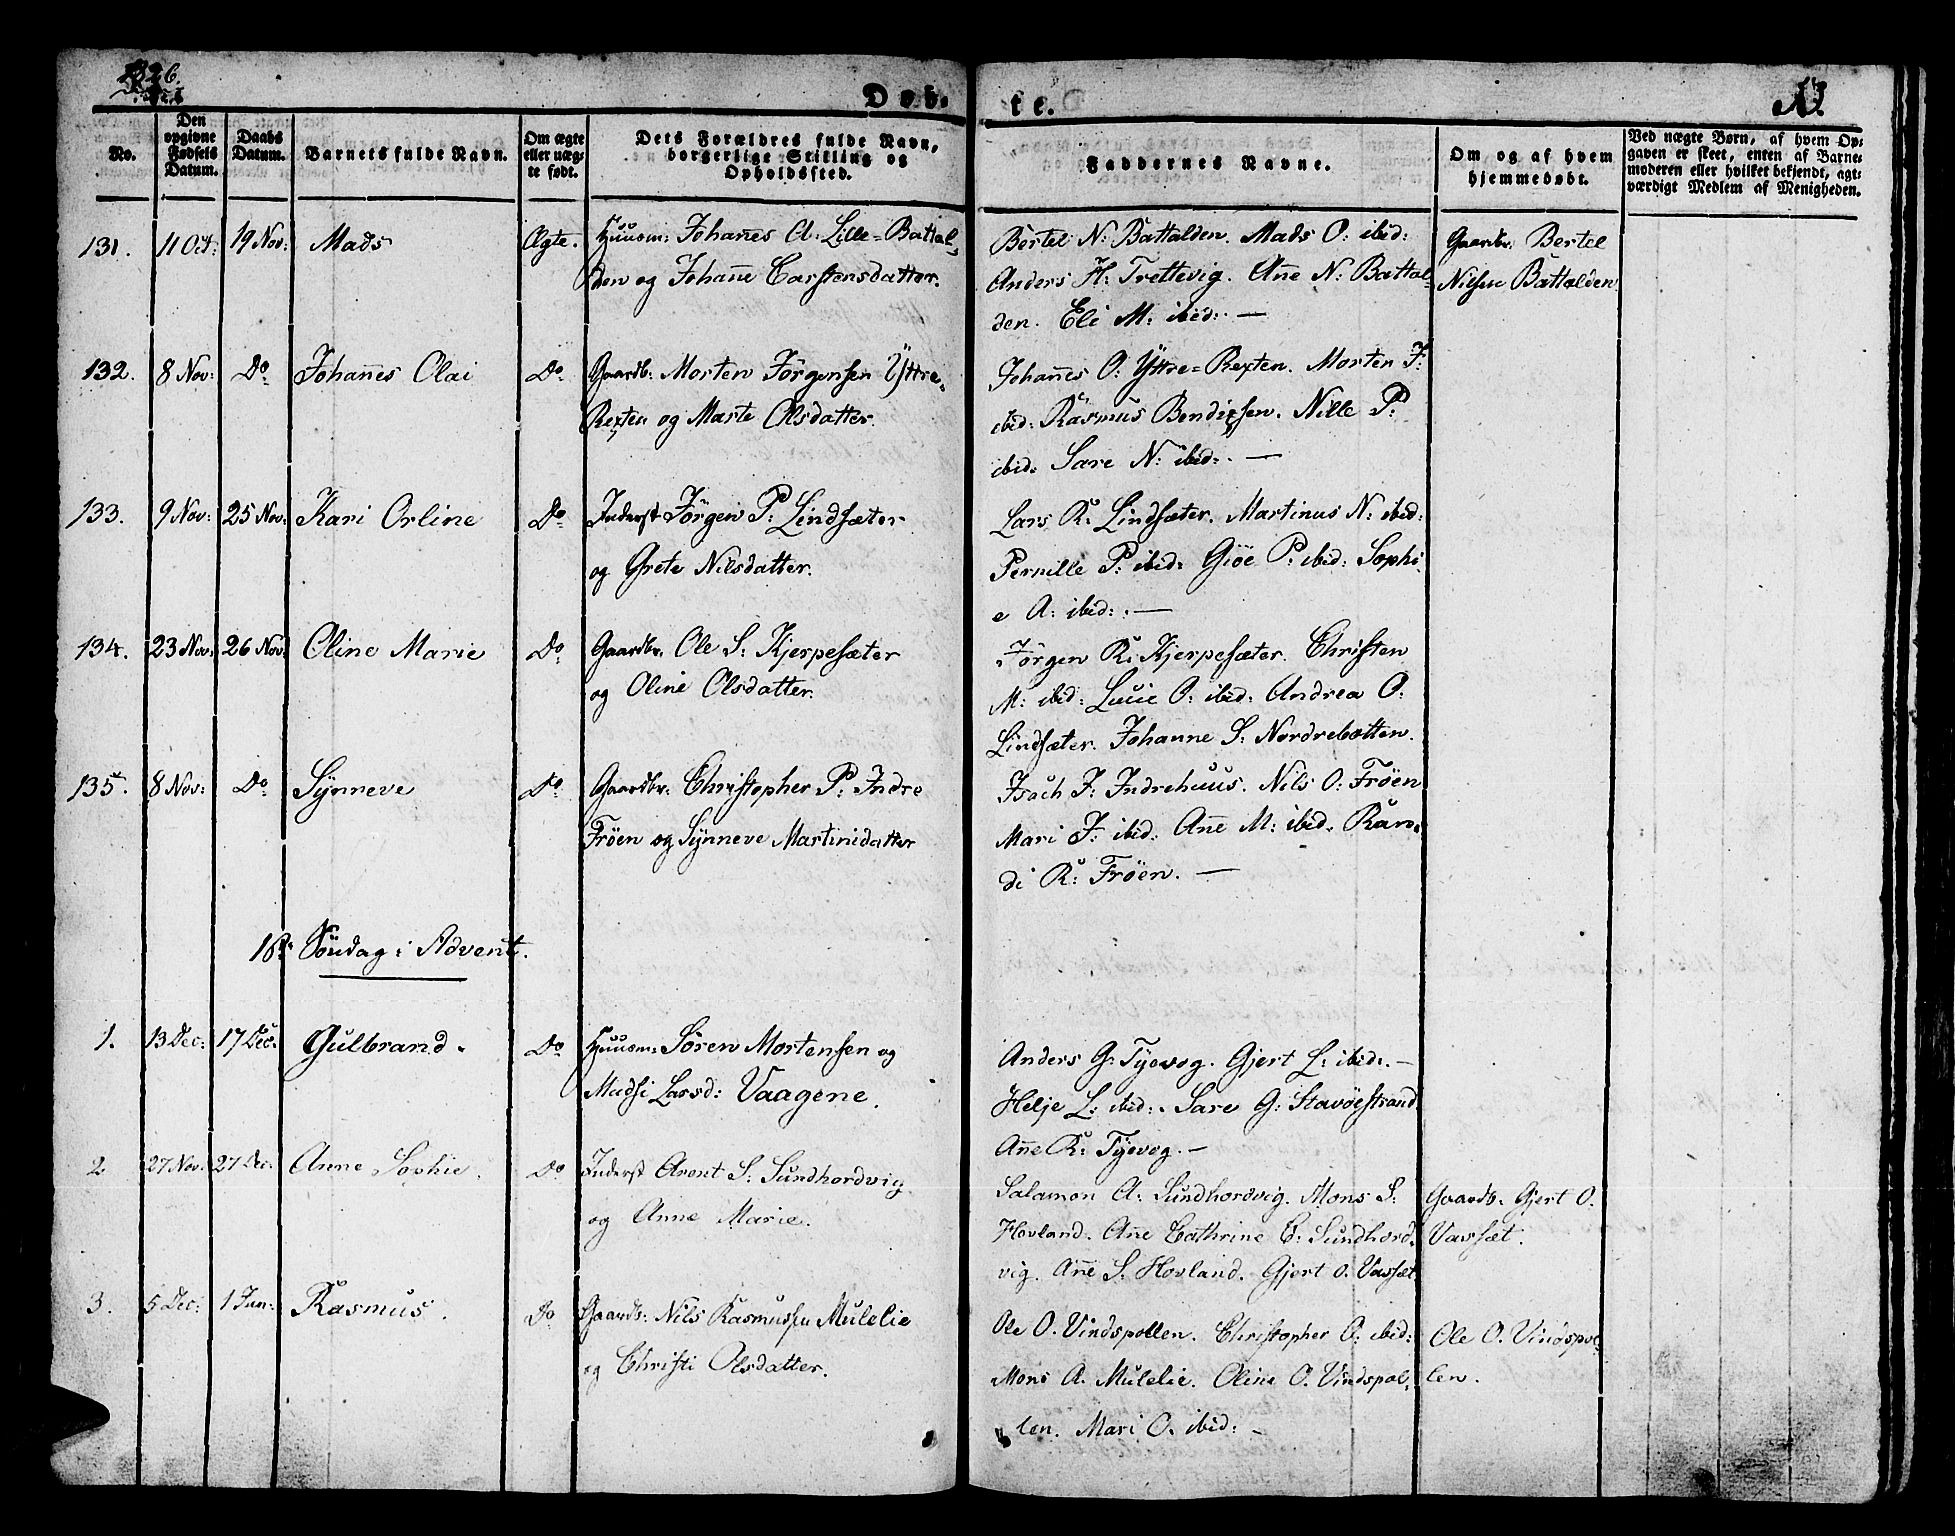 1826.
Døb-
te.
No.
Den opgivne Fødsels Datum.
Daabs Datum.
Barnets fulde Navn.
Om ægte eller uægte født.
Dets Forældres fulde Navn, borgerlige Stilling og Opholdssted.
Faddernes Navne.
Om og af hvem hjemmedøbt.
Ved uægte Børn, af hvem Opgaven er skeet, enten af Barnemoderen eller hvilket bekjendt, agtværdigt Medlem af Menigheden.
131. 11 Oct: 19 Nov: Mads Ægte. Huusm: Johañes A: Lille=Battal-
den og Johañe Carstensdatter.
Bertel N: Battalden. Mads O: ibid:
Anders H: Trettevig. Añe N: Battal-
den. Eli M: ibid: —
Gaardbr: Bertel
Nilsen Battalden
132. 8 Nov: Do Johañes Olai Do Gaardb: Morten Jørgensen Yttre-
Rexten og Marte Olsdatter.
Johañes O: Yttre=Rexten. Morten J:
ibid: Rasmus Bendixsen. Nille P:
ibid: Sare N: ibid: —
133. 9 Nov: 25 Nov: Kari Orline Do Inderst Jørgen P: Lindsæter
og Grete Nilsdatter.
Lars R: Lindsæter. Martinus N: ibid:
Pernille P: ibid: Giöe P: ibid: Sophi-
e A: ibid: —
134. 23 Nov: 26 Nov: Oline Marie Do Gaardbr. Ole S: Kjerpesæter
og Oline Olsdatter.
Jørgen R: Kjerpesæter. Christen
M: ibid: Lucie O: ibid: Andrea O:
Lindsæter. Johanne S: Nordrebotten.
135. 8 Nov: Do Synneve Do Gaardbr: Christopher P: Indre
Fröen og Synneve Martinidatter
Isach J: Indrehuus. Nils O: Fröen
Mari J: ibid: Añe M: ibid. Ran-
di R: Fröen. —
1ste Söndag i Advent.
1. 13 Dec: 17 Dec: Gulbrand. Do Huusm: Søren Mortensen og
Madsi Larsd: Vaagene.
Anders G: Tyevog. Gjert L: ibid: —
Helje L: ibid: Sare G: Stavöestrand
Añe R: Tyevog. —
2 27 Nov: 27 Dec: Anne Sophie. Do Inderst Arent S: Sundhordvig
og Anne Marie.
Salamon A: Sundhordvig. Mons S:
Hovland. Añe Cathrine C: Sundhord-
vig. Añe S: Hovland. Gjert O. Vassæt.
Gaardb: Gjert O.
Vassæt.
3. 5 Dec: 1 Jan: Rasmus. Do Gaardb: Nils Rasmussen Mulelie
og Christi Olsdatter.
Ole O. Vindspollen. Christopher O: ibid:
Mons A. Mulelie. Oline O. Vindspol-
len. Mari O. ibid: —
Ole O. Vindspol-
len.